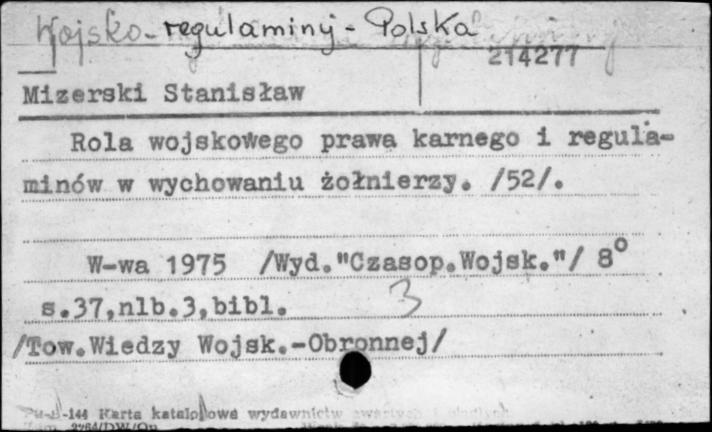 Wojsko - regulaminy - Polska
214277
Mizerski Stanisław
Rola wojskowego prawa karnego i regula-
minów w wychowaniu żołnierzy. /52/.
W-wa 1975 /Wyd."Czasop.Wojsk."/ 8°
s.37,nlb.3,bibl. 3
/Tow.Wiedzy Wojsk.-Obronnej/
-144 Karta katalogowa wydawnictw zwartych i